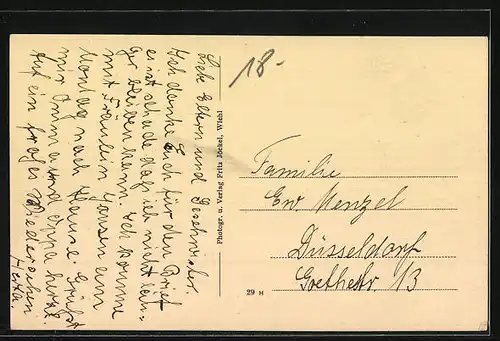 18-
Liebe Eltern und Geschwister.
Ich danke Euch für den Brief
es ist schade daß ich nicht län-
ger bleiben kann. Ich komme
mit Fräulein Jansen am
Montag nach Hause. Grüßt
mir Omma und Oppa herzl.
Auf ein frohes Wiedersehen
Herta.
Photogr. u. Verlag Fritz Jöckel, Wiehl
Familie
Ew. Menzel
Düsseldorf
Goethestr. 13
29 H